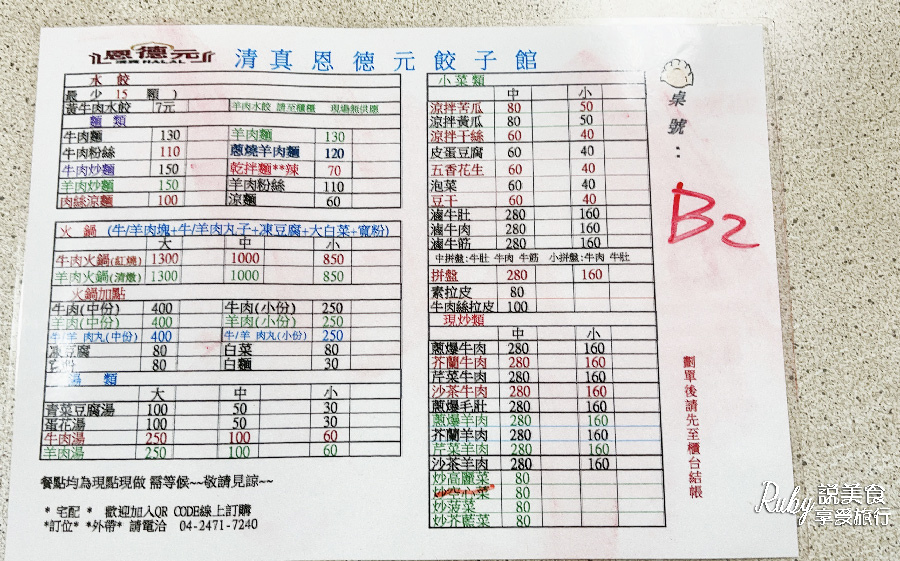 恩德元 清真恩德元餃子館
水餃
最少15顆)
黃牛肉水餃 7元 羊肉水餃 請至櫃檯
麵類
牛肉麵 130 羊肉麵 130
牛肉粉絲 110 蔥燒羊肉麵 120
牛肉炒麵 150 乾拌麵**辣 70
羊肉炒麵 150 羊肉粉絲 110
肉絲涼麵 100 涼麵 60
火鍋 (牛/羊肉塊+牛/羊肉丸子+凍豆腐+大白菜+寬粉)
大 中 小
牛肉火鍋(紅燒) 1300 1000 850
羊肉火鍋(清燉) 1300 1000 850
火鍋加點
牛肉(中份) 400 牛肉(小份) 250
羊肉(中份) 400 羊肉(小份) 250
牛/羊 肉丸(中份) 400 牛/羊 肉丸(小份) 250
凍豆腐 80 白菜 80
80 白麵 30
湯類
大 中 小
青菜豆腐湯 100 50 30
蛋花湯 100 50 30
牛肉湯 250 100 60
羊肉湯 250 100 60
餐點均為現點現做 需等候~~敬請見諒~~
* 宅配 * 歡迎加入QR CODE線上訂購
*訂位* *外帶* 請電洽 04-2471-7240
小菜類
中 小
涼拌苦瓜 80 50
涼拌黃瓜 80 50
涼拌干絲 60 40
皮蛋豆腐 60 40
五香花生 60 40
泡菜 60 40
豆干 60 40
滷牛肚 280 160
滷牛肉 280 160
滷牛筋 280 160
中拼盤:牛肚 牛肉 牛筋 小拼盤:牛肉 牛肚
拼盤 280 160
素拉皮 80
牛肉絲拉皮 100
現炒類
中 小
蔥爆牛肉 280 160
芥蘭牛肉 280 160
芹菜牛肉 280 160
沙茶牛肉 280 160
蔥爆毛肚 280 160
蔥爆羊肉 280 160
芥蘭羊肉 280 160
芹菜羊肉 280 160
沙茶羊肉 280 160
炒高麗菜 80
炒空心菜 80
炒菠菜 80
炒芥藍菜 80
桌號:
B2
劃單後請先至櫃台結帳
Ruby 說美食
享受旅行